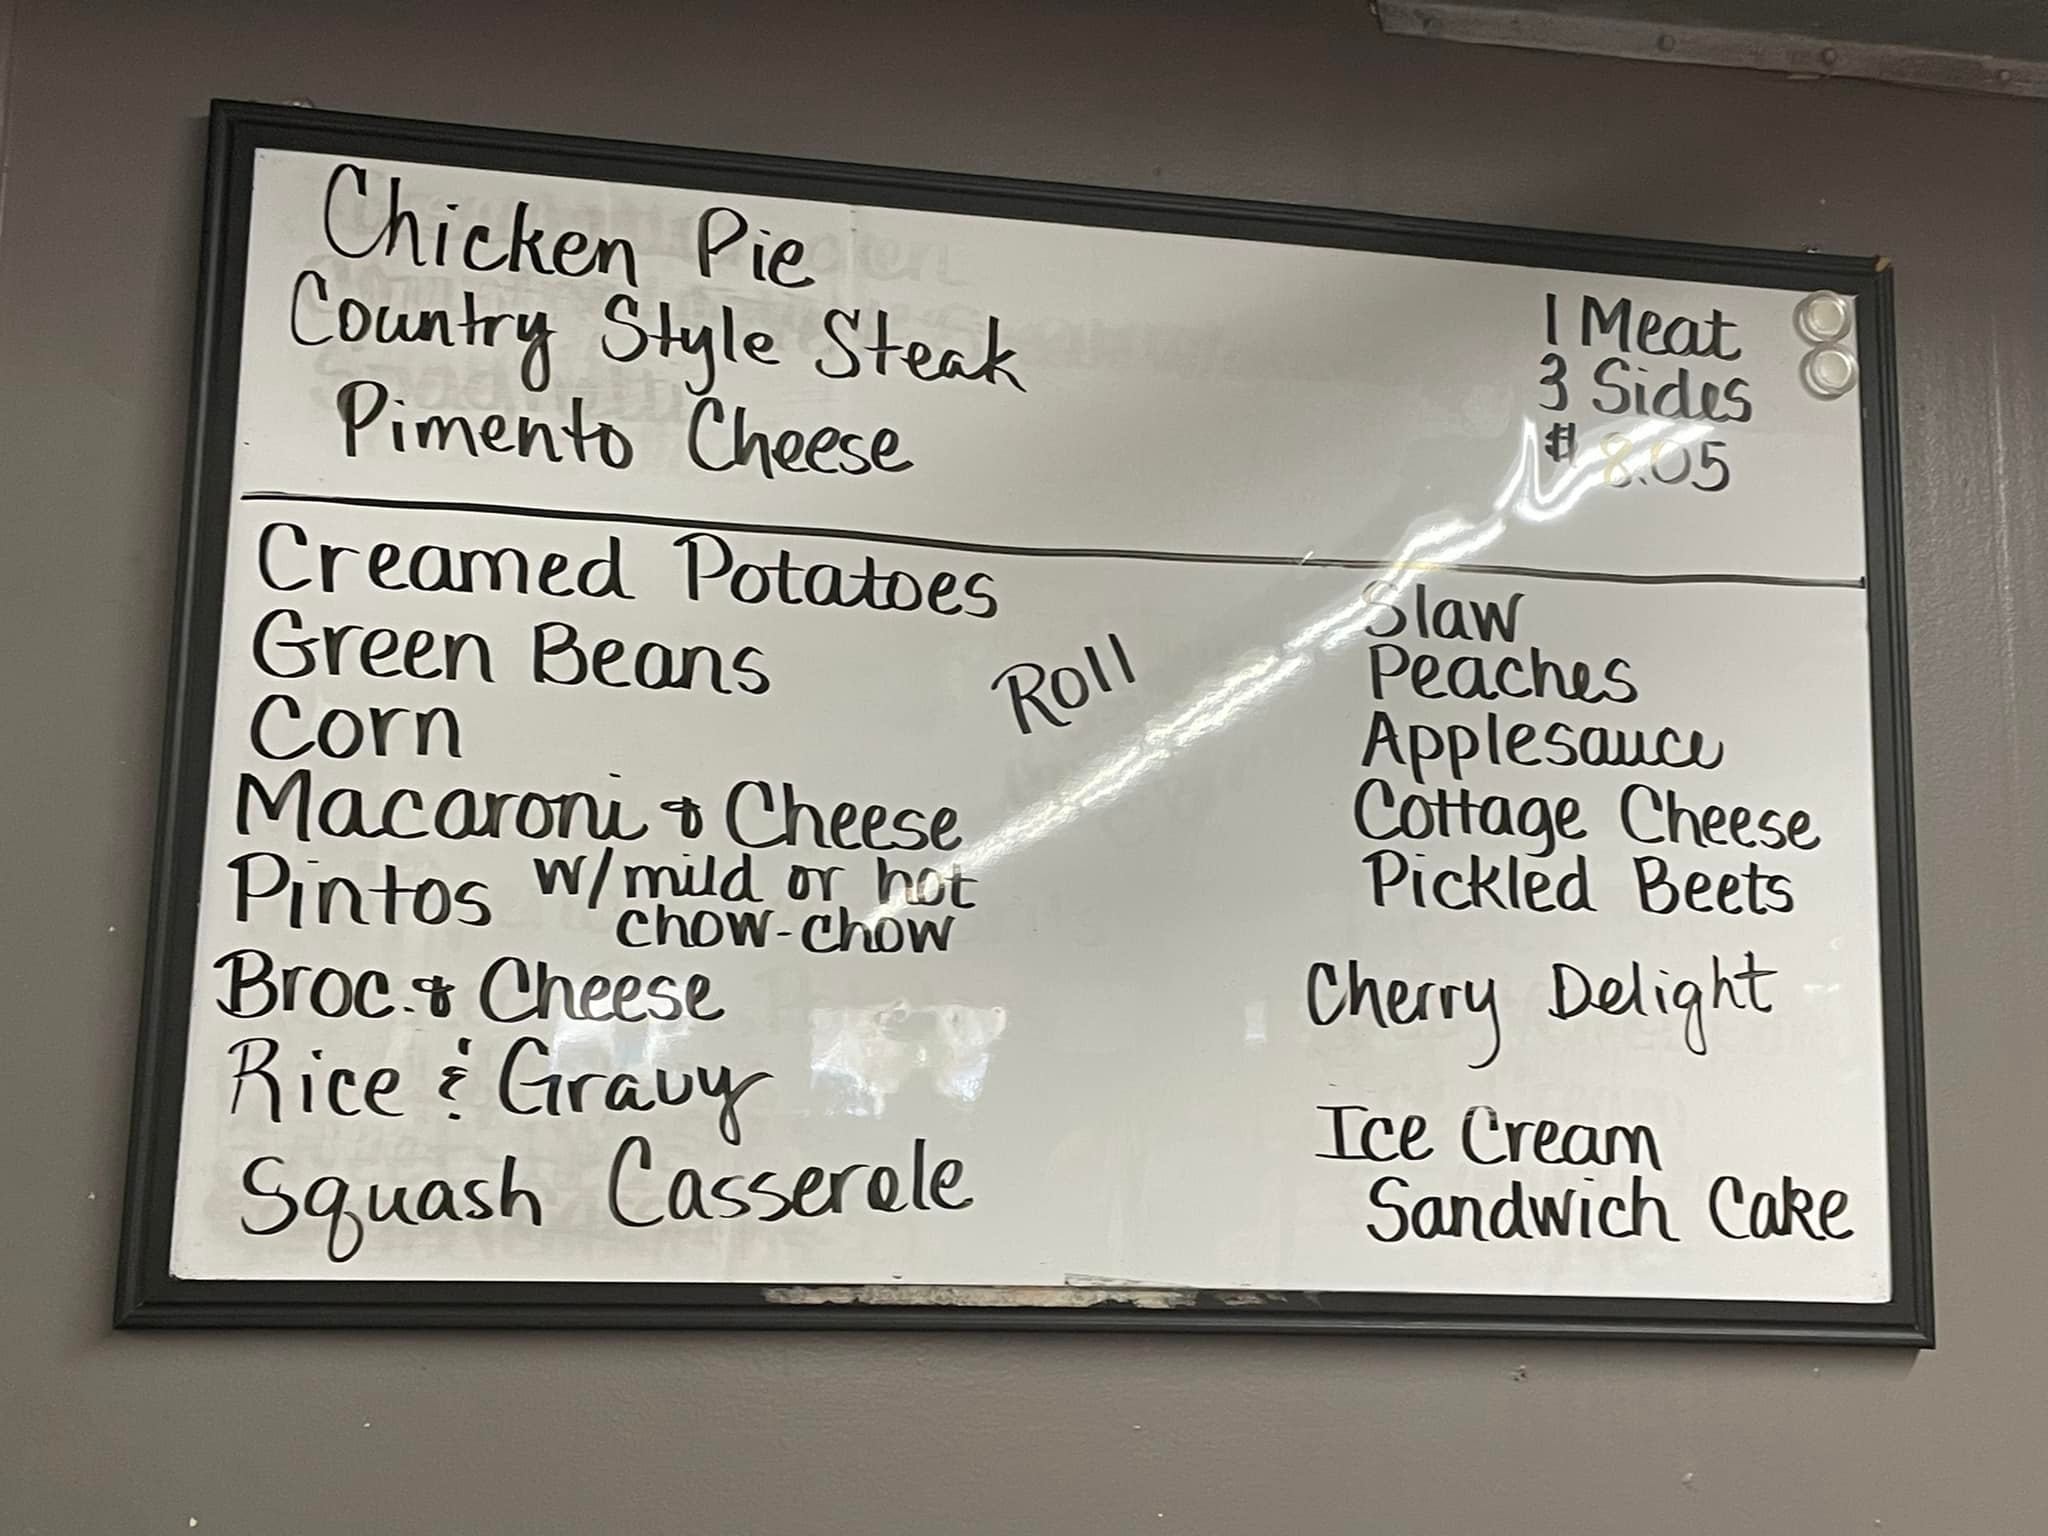 Chicken Pie
Country Style Steak
Pimento Cheese
1 Meat
3 Sides
$ 8.05
Creamed Potatoes
Green Beans
Corn
Macaroni & Cheese
Pintos w/mild or hot
chow-chow
Broc. & Cheese
Rice & Gravy
Squash Casserole
Roll
Slaw
Peaches
Applesauce
Cottage Cheese
Pickled Beets
Cherry Delight
Ice Cream
Sandwich Cake